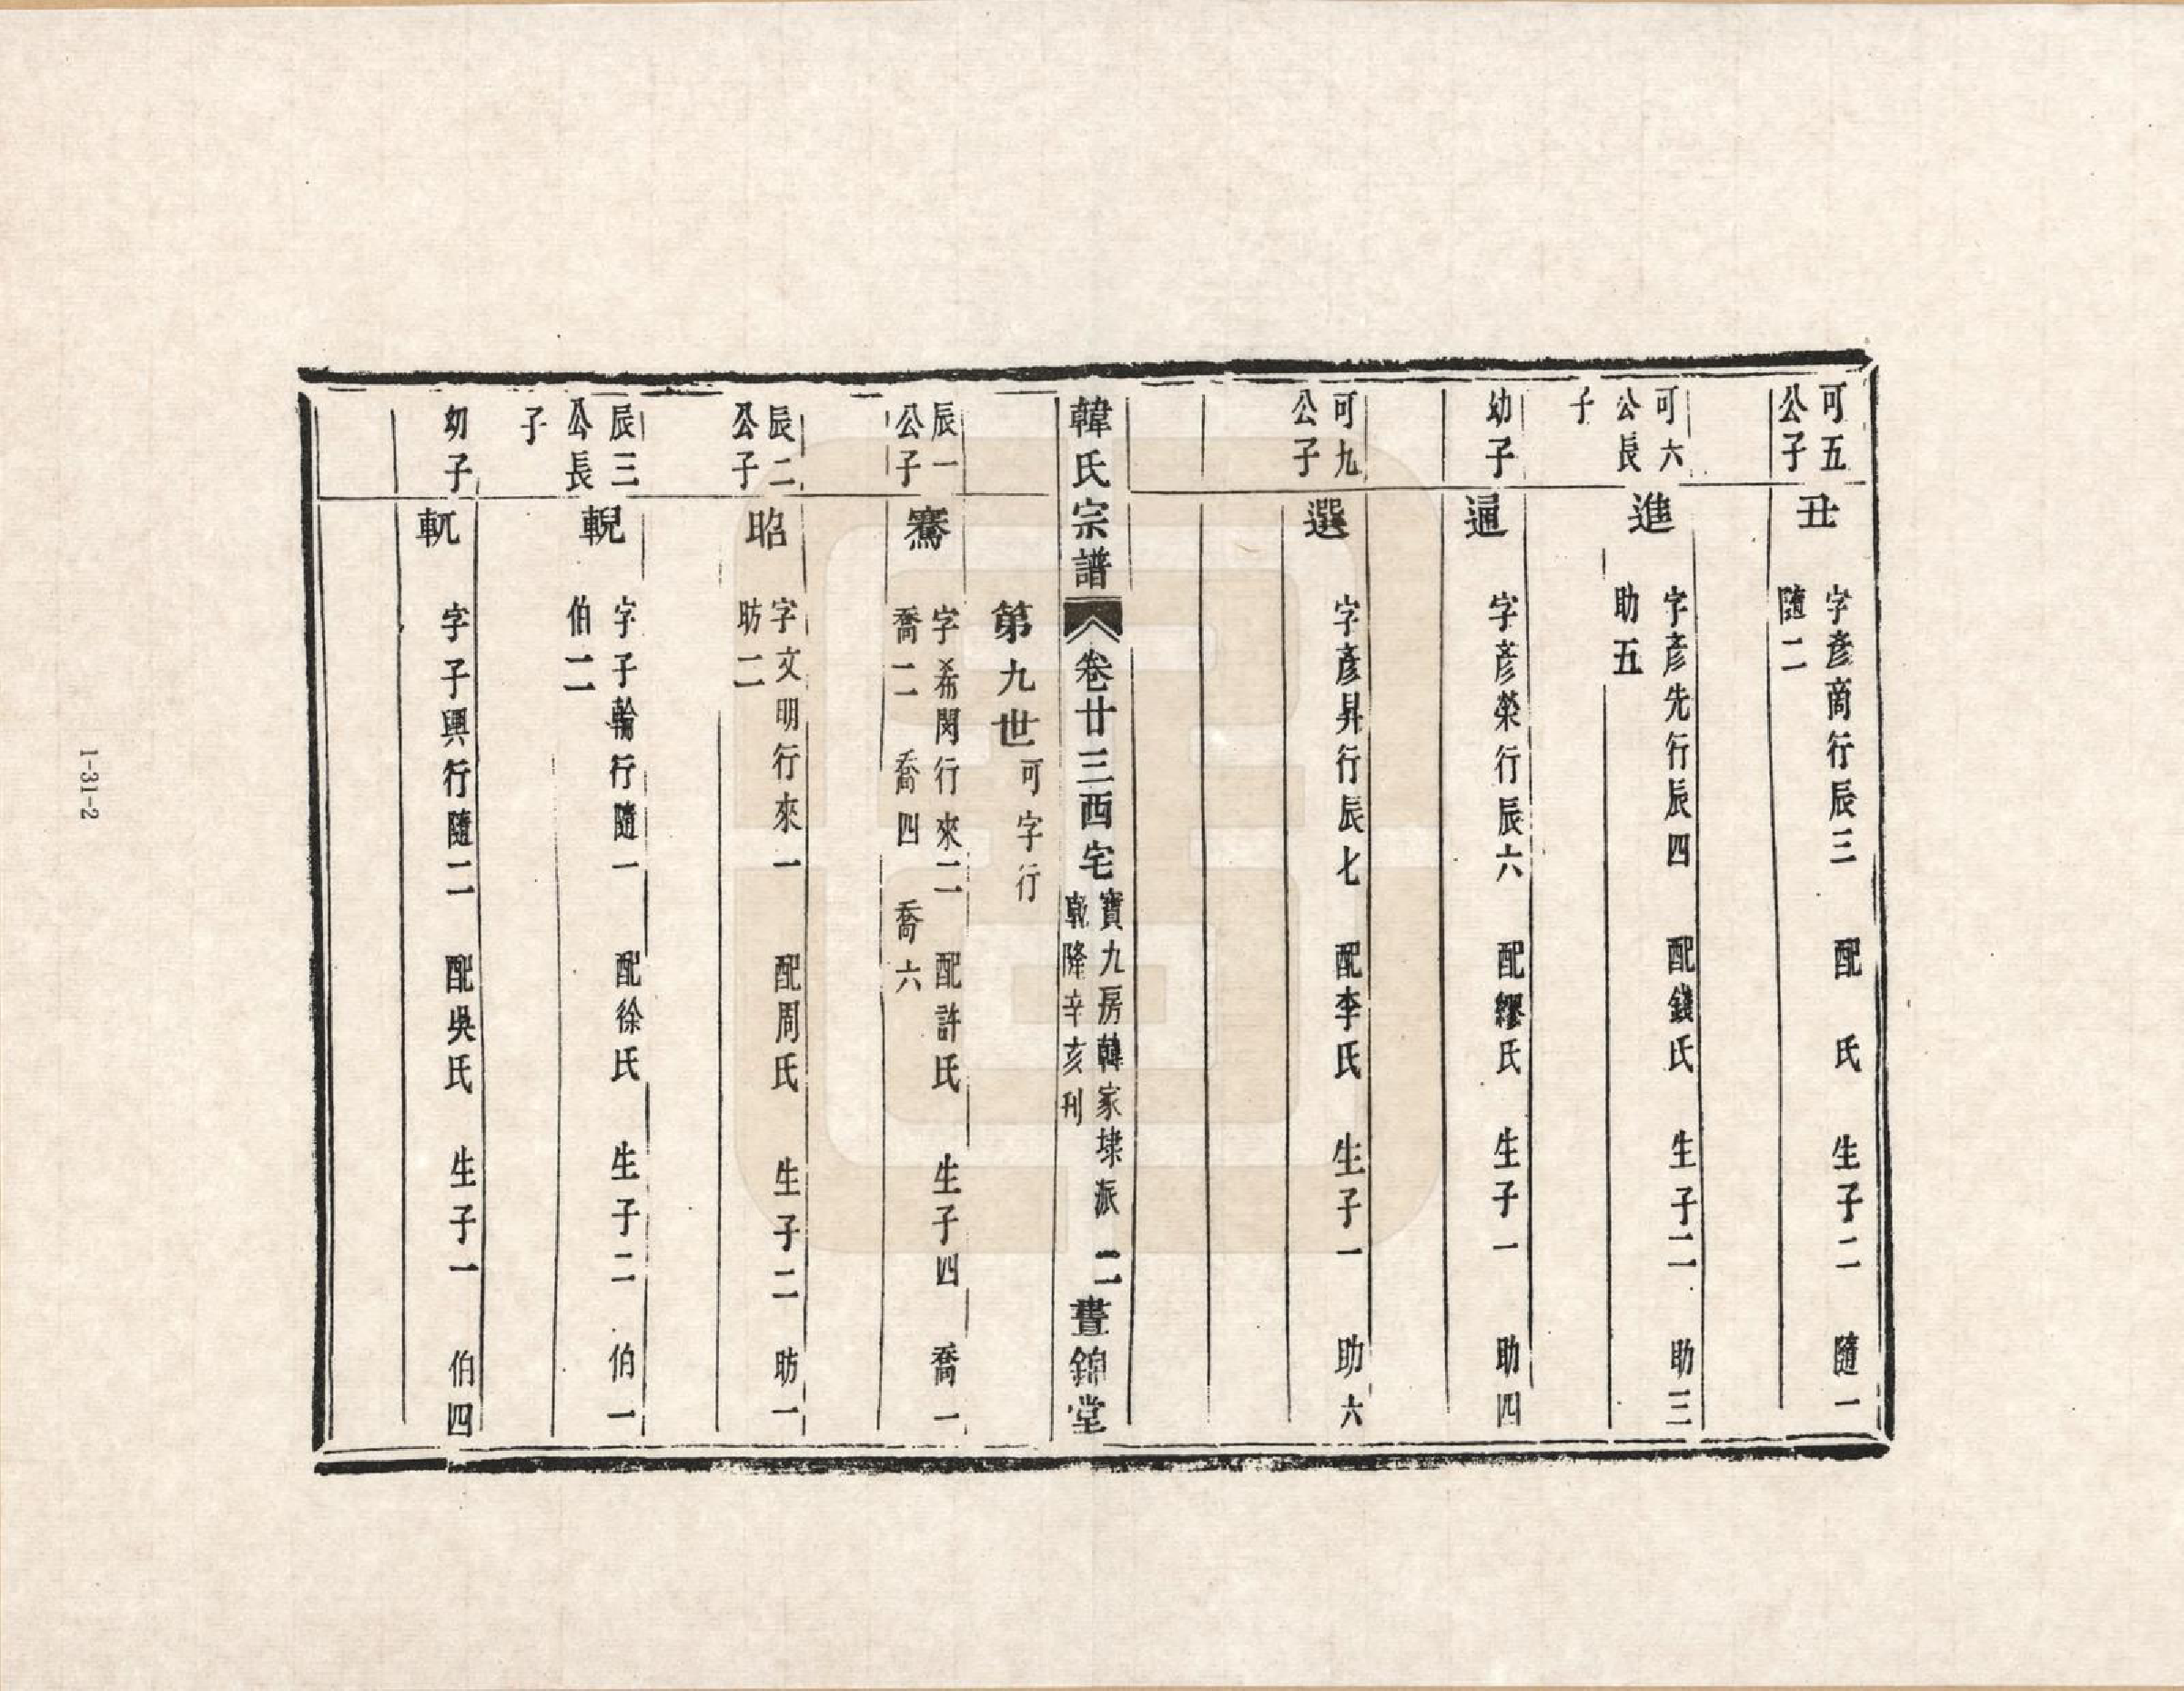 可五
公子
丑
字彥商行辰三 配 氏 生子二 隨一
隨二
可六
公長
子
進
字彥先行辰四 配錢氏 生子二 助三
助五
幼子
逼
字彥榮行辰六 配繆氏 生子一 助四
可九
公子
選
字彥昇行辰七 配李氏 生子一 助六
韓氏宗譜 卷廿三西宅
寶九房韓家埭派
乾隆辛亥刊
二
晝錦堂
第九世
可字行
辰一
公子
騫
字希閔行來二 配許氏 生子四 喬一
喬二 喬四 喬六
辰二
公子
昭
字文明行來一 配周氏 生子二 昉一
昉二
辰三
公長
子
輗
字子輪行隨一 配徐氏 生子二 伯一
伯二
幼子
軏
字子興行隨二 配吳氏 生子一 伯四
1-31-2